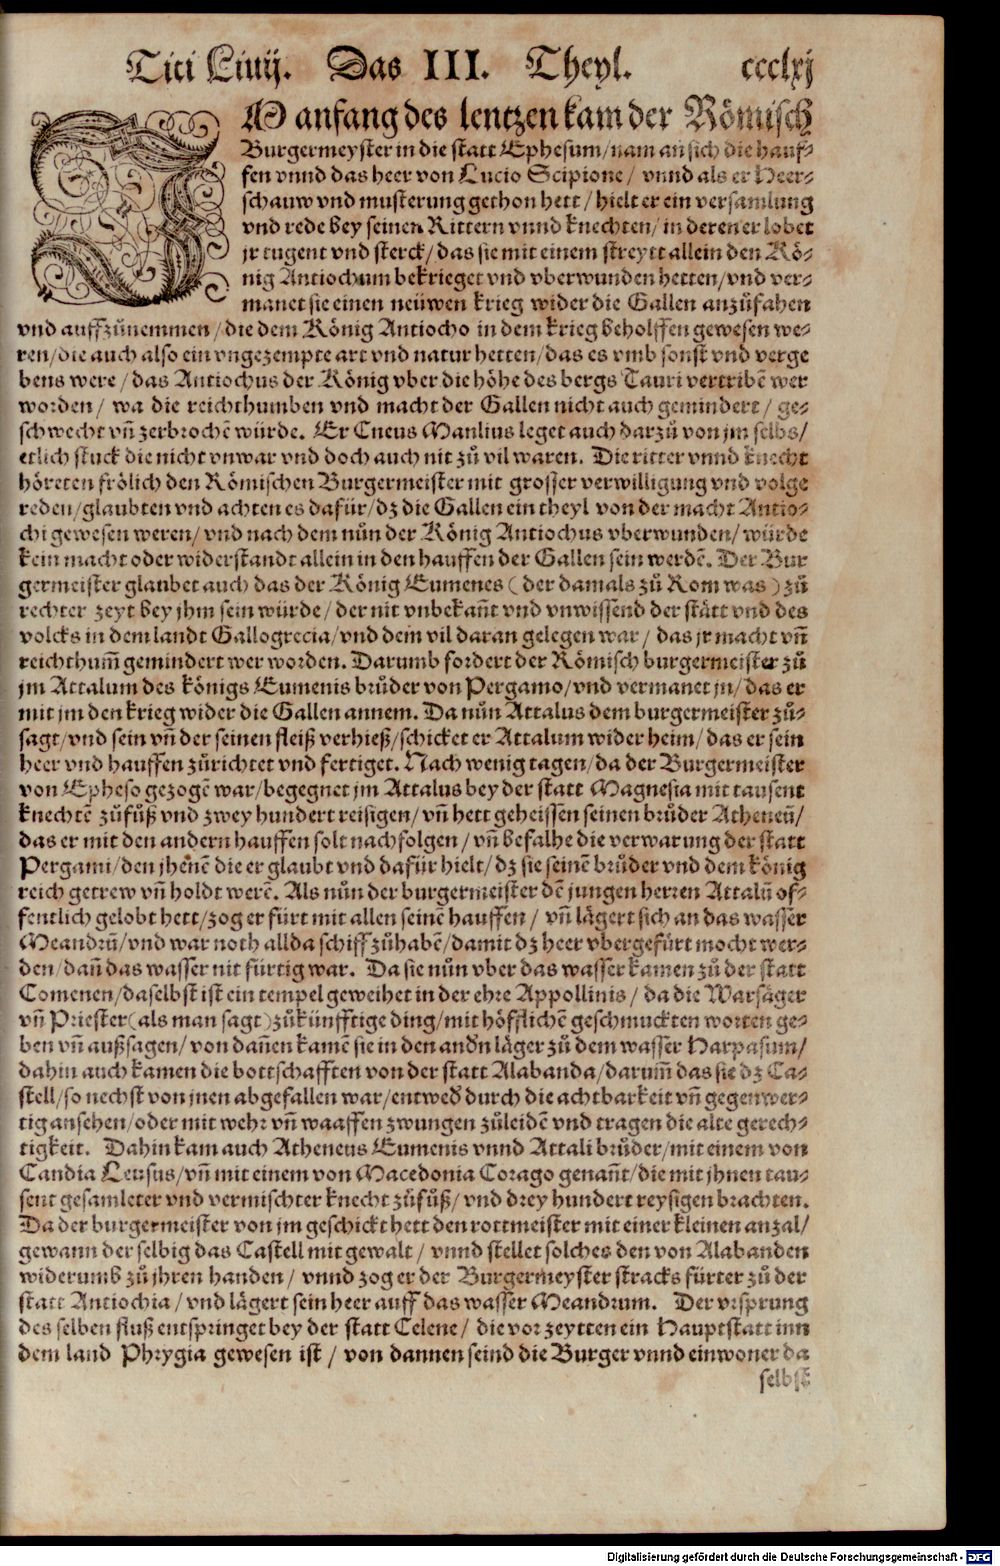 Titi Liuij. Das III. Theyl. ccclxj
IM anfang des lentzen kam der Römisch
Burgermeyster in die statt Ephesum/nam an sich die hauf-
fen vnnd das heer von Lucio Scipione / vnnd als er Heer-
schauw vnd musterung gethon hett / hielt er ein versamlung
vnd rede bey seinen Rittern vnnd knechten/ in deren er lobet
jr tugent vnd sterck/das sie mit einem streytt allein den Kö-
nig Antiochum bekrieget vnd vberwunden hetten/vnd ver-
manet sie einen neüwen krieg wider die Gallen anzůfahen
vnd auffzůnemmen/die dem König Antiocho in dem krieg beholffen gewesen we-
ren/die auch also ein vngezempte art vnd natur hetten/das es vmb sonst vnd verge
bens were / das Antiochus der König vber die höhe des bergs Tauri vertribē wer
worden/ wa die reichthumben vnd macht der Gallen nicht auch gemindert / ge-
schwecht vñ zerbrochē würde. Er Cneus Manlius leget auch darzů von jm selbs/
etlich stuck die nicht vnwar vnd doch auch nit zů vil waren. Die ritter vnnd knecht
höreten frölich den Römischen Burgermeister mit grosser verwilligung vnd volge
reden/glaubten vnd achten es dafür/dz die Gallen ein theyl von der macht Antio-
chi gewesen weren/ vnd nach dem nůn der König Antiochus vberwunden/ würde
kein macht oder widerstandt allein in den hauffen der Gallen sein werdē. Der Bur
germeister glaubet auch das der König Eumenes ( der damals zů Rom was ) zů
rechter zeyt bey jhm sein würde/ der nit vnbekañt vnd vnwissend der stätt vnd des
volcks in dem landt Gallogrecia/vnd dem vil daran gelegen war/ das jr macht vñ
reichthum̃ gemindert wer worden. Darumb fordert der Römisch burgermeister zů
jm Attalum des königs Eumenis brůder von Pergamo/vnd vermanet jn/das er
mit jm den krieg wider die Gallen annem. Da nůn Attalus dem burgermeister zů-
sagt/vnd sein vñ der seinen fleiß verhieß/schicket er Attalum wider heim/das er sein
heer vnd hauffen zůrichtet vnd fertiget. Nach wenig tagen/da der Burgermeister
von Epheso gezogē war/begegnet jm Attalus bey der statt Magnesia mit tausent
knechtē zůfůß vnd zwey hundert reisigen/ vñ hett geheissen seinen brůder Atheneū/
das er mit den andern hauffen solt nachfolgen/ vñ befalhe die verwarung der statt
Pergami/den jhenē die er glaubt vnd dafür hielt/dz sie seinē brůder vnd dem könig
reich getrew vñ holdt werē. Als nůn der burgermeister dē jungen herren Attalū of-
fentlich gelobt hett/zog er fürt mit allen seinē hauffen / vñ lägert sich an das wasser
Meandrū/vnd war noth allda schiff zůhabē/damit dz heer vbergefürt mocht wer-
den/dañ das wasser nit fürtig war. Da sie nůn vber das wasser kamen zů der statt
Comenen/daselbst ist ein tempel geweihet in der ehre Appollinis / da die Warsäger
vñ Priester(als man sagt)zůkünfftige ding/mit höfflichē geschmuckten worten ge-
ben vñ außsagen/ von dañen kamē sie in den andn läger zů dem wasser Harpasum/
dahin auch kamen die bottschafften von der statt Alabanda/darum̃ das sie dz Ca-
stell/so nechst von jnen abgefallen war/entwed durch die achtbarkeit vñ gegenwer-
tig ansehen/oder mit wehr vñ waaffen zwungen zůleidē vnd tragen die alte gerech-
tigkeit. Dahin kam auch Atheneus Eumenis vnnd Attali brůder/mit einem von
Candia Leusus/vñ mit einem von Macedonia Corago genañt/die mit jhnen tau-
sent gesamleter vnd vermischter knecht zůfůß/ vnd drey hundert reysigen brachten.
Da der burgermeister von jm geschickt hett den rottmeister mit einer kleinen anzal/
gewann der selbig das Castell mit gewalt / vnnd stellet solches den von Alabanden
widerumb zů jhren handen / vnnd zog er der Burgermeyster stracks fürter zů der
statt Antiochia / vnd lägert sein heer auff das wasser Meandrum. Der vrsprung
des selben fluß entspringet bey der statt Celene/ die vor zeytten ein Hauptstatt inn
dem land Phrygia gewesen ist / von dannen seind die Burger vnnd einwoner da
selbst
Digitalisierung gefördert durch die Deutsche Forschungsgemeinschaft - DFG